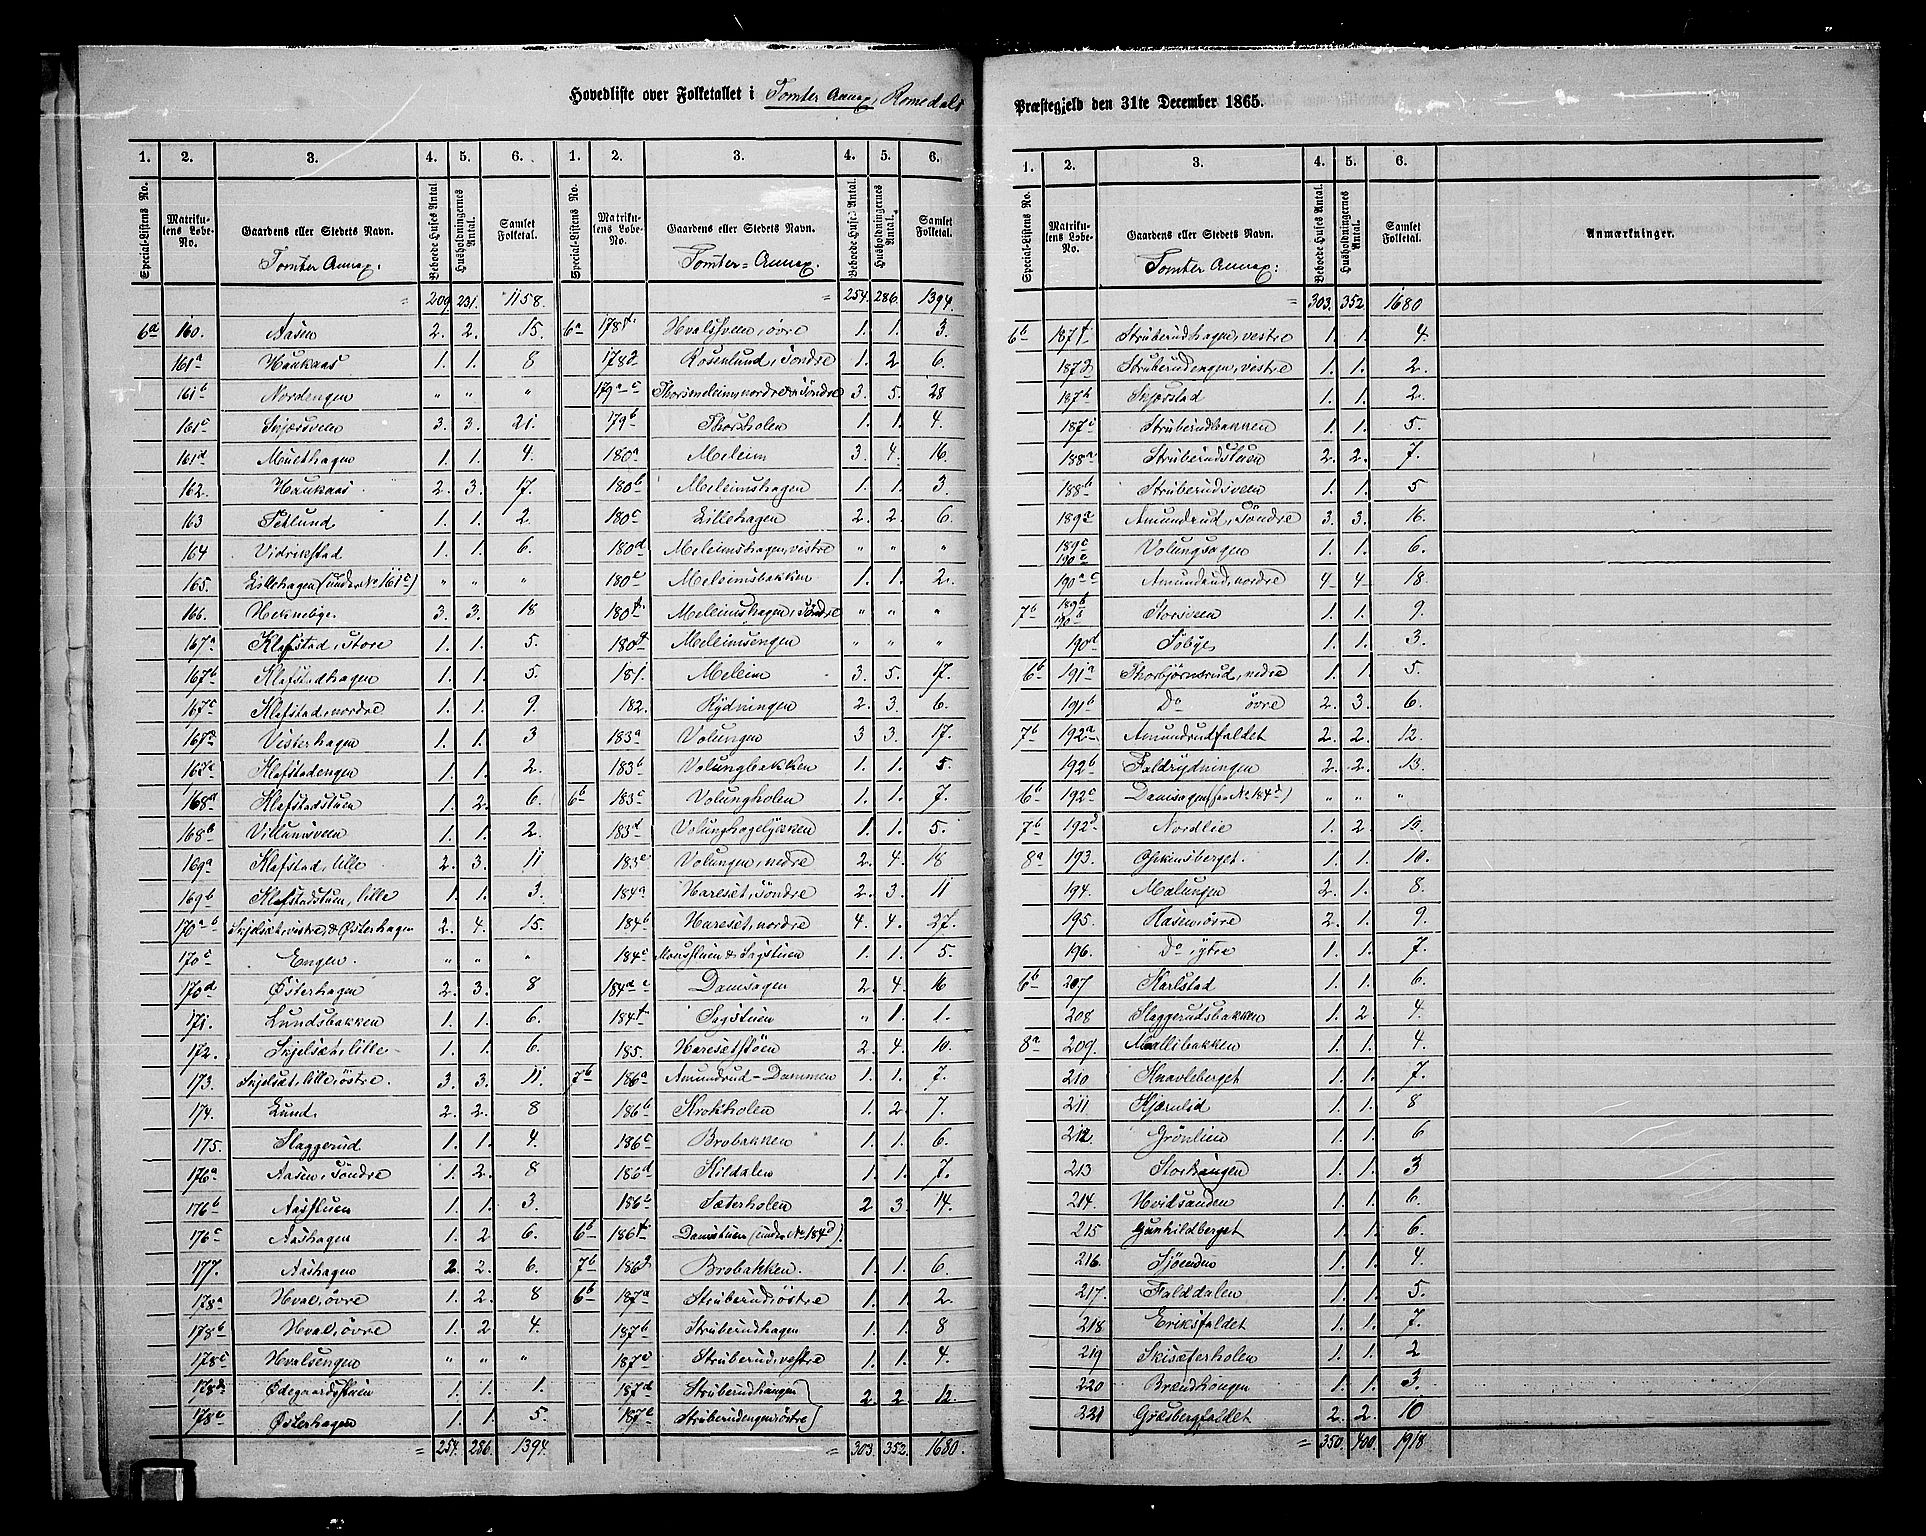 Hovedliste over Folketallet i Tomter Annex, Romedals
Præstegjeld den 31te December 1865.
1. 2. 3. 4. 5. 6.
Special-Listens No. Matrikulens Løbe-No. Gaardens eller Stedets Navn. Beboede Huses Antal. Husholdningernes Antal. Samlet Folketal.
Tomter Annex.
= 209. 231. 1158.
6a 160. Aasen 2. 2. 15.
161a Haukaas 1. 1. 8
161b Nordengen " " "
161c Skjærsveen 3. 3. 21.
161d Multhagen 1. 1. 4.
162. Haukaas 2. 3. 17.
163 Petlund 1. 1. 2.
164 Vidrikstad 1. 1. 6.
165. Lillehagen (under No 161c) " " "
166. Heknebye. 3. 3. 18
167a Klafstad, Store 1. 1. 5.
167b Klafstadhagen 1. 1. 5.
167c Klafstad, nordre 1. 1. 9.
167d Vesterhagen 1. 1. 3
Klafstadengen 1. 1. 2.
Klafstadstuen 1. 2. 6.
168b 1. 1. 2.
169a Klafstad, lille 2. 3. 11
169b Klafstadstuen, lille 1. 1. 3.
170a b Skjelsæt, vestre, & Østerhagen 2. 4. 15.
170c Engen. " " "
170d Østerhagen 2. 3. 8
171. Lundsbakken 1. 1. 6.
172. Skjelsæt, lille 1. 1. 6.
173. Skjelsæt, lille, østre. 3. 3. 11.
174. Lund. 2. 2. 8
175. Slaggerud 1. 1. 4.
176a Aasen, Söndre 1. 2. 8
176b Aasstuen 1. 1. 3.
176c Aashagen 1. 2 6.
177. Aashagen 2. 2. 6.
178a Hval, övre 1. 2. 8
178b Hval, övre 1. 2 4.
178c Hvalsengen " " "
178d Ødegaardsstuen 1. 1. 1.
178e Østerhagen 1. 1. 5.
= 254. 286. 1394.
1. 2. 3. 4. 5. 6.
Special-Listens No. Matrikulens Løbe-No. Gaardens eller Stedets Navn. Beboede Huses Antal. Husholdningernes Antal. Samlet Folketal.
Tomter = Annex.
= 254. 286. 1394.
6a 178f Hvalsveen, övre 1. 1. 3.
178g Rosenlund, Söndre 1. 2 6.
179a c Thorsenheim, nordre & Söndre 3. 5. 28
179b Thorsholen 1. 1. 4.
180a Meleim 3. 4. 16.
180b Meleimshagen 1. 1. 3.
180c Lillehagen 2. 2. 6.
180d Meleimshagen, vestre " " "
180e Meleimsbakken 1. 1. 2.
180f Meleimshagen, Söndre " " "
180g Meleimsengen " " "
181. Meleim 3. 5. 17.
182. Rydningen 2. 3. 6.
183a Volungen 3 3. 17.
183b Volungbakken 1. 1. 5.
6b 183c Volungholen 1. 1. 7.
183d Volunghagelykken 1. 1. 5.
183e Volungen, nedre 2. 4. 18
184a Hareset, Söndre 2. 3. 11
184b Hareset, nordre 4. 4. 27.
184c & Sagstuen 1. 1. 5.
184d e Damsagen 2. 4 16
184f Sagstuen " 1 1.
185. Haresetstöen 2. 4. 10.
7b 186a Amundrud-Dammen 1. 1. 7.
186b Krokholen 1. 2. 7.
186c Brobakken 1. 1. 6.
186d Kildalen 1. 1. 7.
186e Sæterholen 2 3. 14.
6b 186f Damstuen (under No 184d).
7b 186g Brobakken. 1. 1. 6.
6b 187a Struberud, østre 1. 1. 2.
187b Struberudhagen 1. 1. 8
187c Struberud, vestre 1. 1. 4.
187d Struberudhaugen
187e Struberudengen, østre 2 2. 12.
= 303. 352. 1680.
1. 2. 3. 4. 5. 6.
Special-Listens No. Matrikulens Løbe-No. Gaardens eller Stedets Navn. Beboede Huses Antal. Husholdningernes Antal. Samlet Folketal. Anmærkninger.
Tomter Annex:
= 303. 352. 1680
6b 187f Struberudhagen, vestre 1. 1. 4.
187g Struberudengen, vestre 1. 1. 2.
187h Skjærstad 1. 1. 2.
187i Struberudbakken 1. 1. 5.
188a Struberudstuen 2. 2. 7.
188b Struberudsveen 1. 1. 5
189a Amundrud, Söndre 3. 3. 16.
189c 190e Volungsagen 1. 1. 6.
190a c Amundrud, nordre 4 4 18.
7b 189b 190b Storsveen 1. 1. 9.
190d Søbye 1. 1. 3.
6b 191a Thorbjørnsrud, nedre 1. 1. 5.
191b Do övre 2. 3. 6.
7b 192a Amundrudfaldet 2. 2. 12.
192b Faldrydningen 2. 2. 13.
6b 192c Damsagen (see No 184d) " " "
7b 192d Nordlie 1. 2. 10.
8a 193. 1. 1. 10.
194. Malungen 2. 1. 8.
195. Aasen, övre 2. 1. 9.
196. Do, ytre 1. 1. 7.
6b 207 Karlstad 1. 1. 6.
208 Slaggerudsbakken 1. 2. 4.
8a 209. Mallibakken 1. 1. 4.
210 Knavleberget 1. 1. 7.
211 Kjærnlid 1. 1. 8
212. Grönlien 1. 1. 6
213 Storhaugen 1. 1. 3
214. Hvidsanden 1. 1. 6.
215 Gunhildberget 1. 1. 6.
216. Sjøenden 1. 1. 4.
217. Falddalen 1. 1. 5.
218 Eriksfaldet 1. 1. 7.
219 Skisæterholen 1. 1. 2
220 Brændhaugen 1. 1. 3.
221 Græsbergfaldet 2. 2. 10
= 350. 400. 1918.